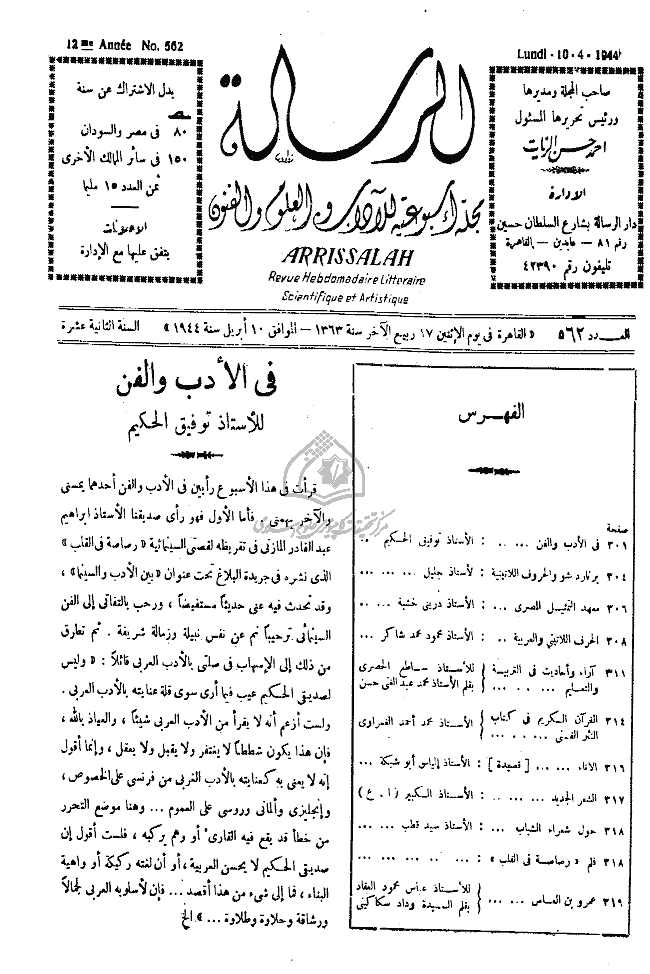 12me Année No. 562
بدل الاشتراك عن سنة
٨٠ فى مصر والسودان
١٥٠ فى سائر الممالك الأخرى
ثمن العدد ١٥ مليما
الاعلانات
يتفق عليها مع الإدارة
الرسالة
مجلة أسبوعية للآداب والعلوم والفنون
ARRISSALAH
Revue Hebdomadaire Litteraire
Scientifique et Artistique
Lundi - 10 - 4 - 1944
صاحب المجلة ومديرها
ورئيس تحريرها المسئول
احمد حسن الزيات
الادارة
دار الرسالة بشارع السلطان حسين
رقم ٨١ — عابدين — القاهرة
تليفون رقم ٤٢٣٩٠
العـــدد ٥٦٢ « القاهرة فى يوم الإثنين ١٧ ربيع الآخر سنة ١٣٦٣ — الموافق ١٠ أبريل سنة ١٩٤٤ » السنة الثانية عشرة
الفهرس
صفحة
٣٠١ فى الأدب والفن ... .. : الأستاذ توفيق الحكيم ..
٣٠٤ برنارد شو والحروف اللاتينية : لأستاذ جليل ... ... ...
٣٠٦ معهد التمثيل المصرى ... .. : الأستاذ درينى خشبة ... ..
٣٠٨ الحرف اللاتينى والعربية .. : الأستاذ محمود محمد شاكر ...
٣١١ آراء وأحاديث فى التربية والتعليم ... .. ... { للأستاذ ساطع الحصرى بقلم الأستاذ محمد عبد الغنى حسن
٣١٤ القرآن الكريم فى كتاب النثر الفنى ... .. ... { الأستاذ محمد أحمد الغمراوى
٣١٦ الاناء ... ... [ قصيدة ] : الأستاذ إلياس أبو شبكة ...
٣١٧ الشعر الجديد ... ... .. : الأستاذ الكبير ( ا . ع )
٣١٨ حول شعراء الشباب ... : الأستاذ سيد قطب ... ...
٣١٨ فلم « رصاصة فى القلب » : ... .. ... ... ...
٣١٩ عمرو بن العاص ... ... { للأستاذ عباس محمود العقاد بقلم السيدة وداد سكاكينى
فى الأدب والفن
للأستاذ توفيق الحكيم
قرأت فى هذا الأسبوع رأيين فى الأدب والفن أحدهما يمسنى
والآخر يهمنى . فأما الأول فهو رأى صديقنا الأستاذ ابراهيم
عبد القادر المازنى فى تقريظه لقصتى السينمائية « رصاصة فى القلب »
الذى نشره فى جريدة البلاغ تحت عنوان « بين الأدب والسينما » ،
وقد تحدث فيه عنى حديثاً مستفيضاً ، ورحب بالتفاتى إلى الفن
السينمائى ترحيباً نم عن نفس نبيلة وزمالة شريفة . ثم تطرق
من ذلك إلى الإسهاب فى صلتى بالأدب العربى قائلاً : « وليس
لصديقى الحكيم عيب فيما أرى سوى قلة عنايته بالأدب العربى .
ولست أزعم أنه لا يقرأ من الأدب العربى شيئاً ، والعياذ بالله ،
فإن هذا يكون شططاً لا يغتفر ولا يقبل ولا يعقل ، وإنما أقول
إنه لا يعنى به كعنايته بالأدب الغربى من فرنسى على الخصوص ،
وإنجليزى وألمانى وروسى على العموم ... وهنا موضع التحرر
من خطأ قد يقع فيه القارئ أو وهم يركبه ، فلست أقول إن
صديقى الحكيم لا يحسن العربية ، أو أن لغته ركيكة أو واهية
البناء ، فما إلى شىء من هذا أقصد ... فإن لأسلوبه العربى لجمالاً
ورشاقة وحلاوة وطلاوة ... » الخ